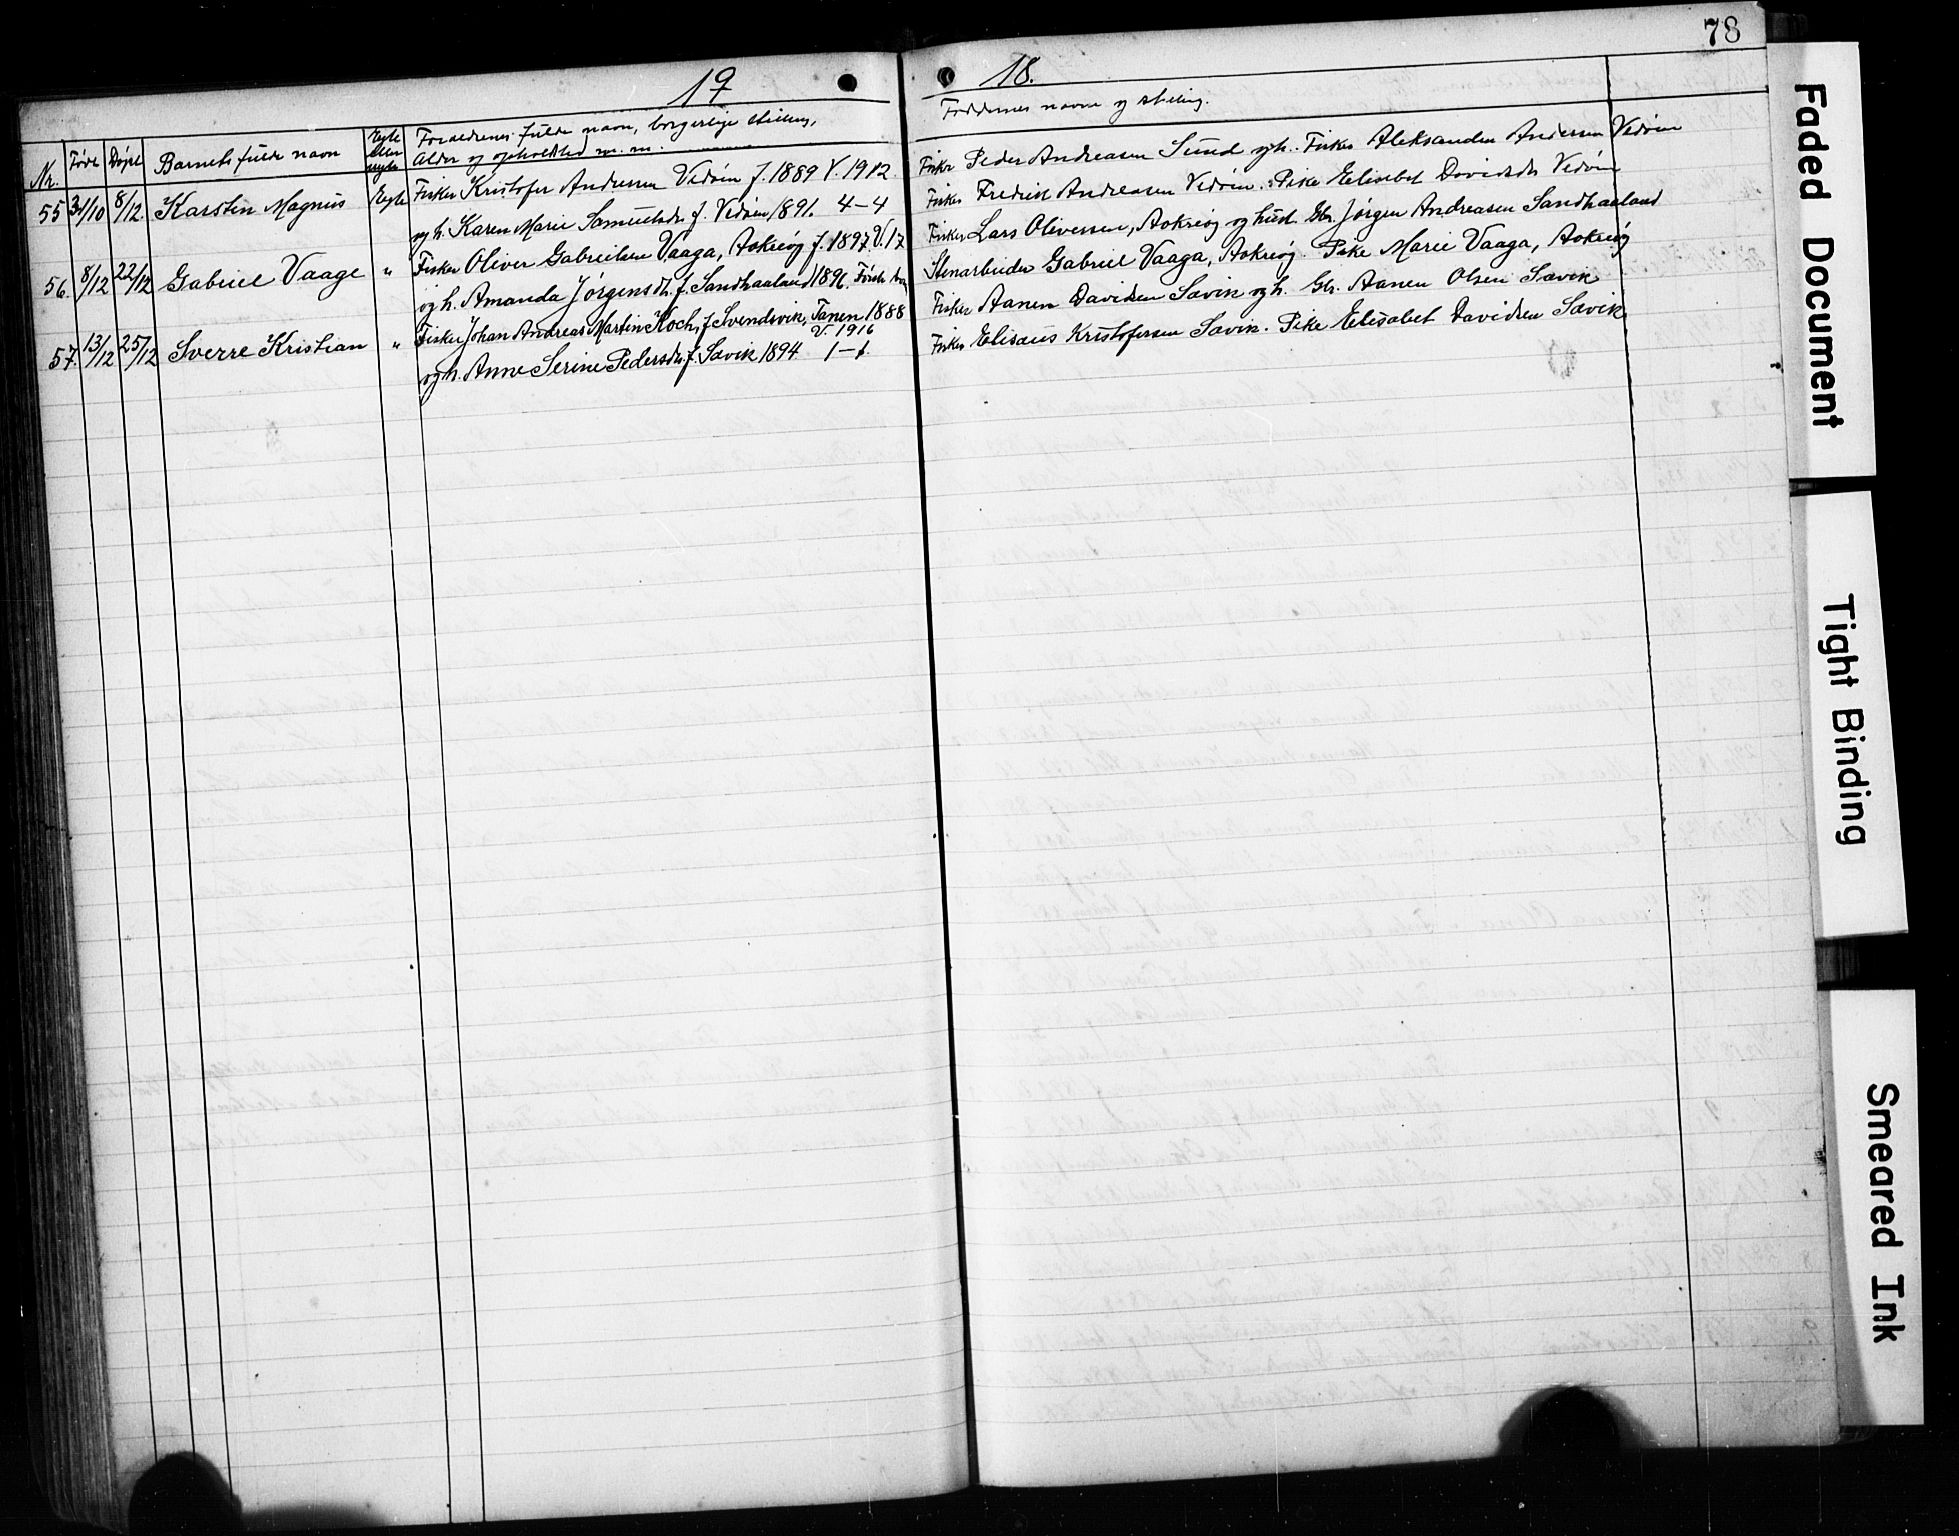 78
19
18.
Nr. Født Døpt Barnets fulde navn Egte eller uegte Foraldrenes fulde navn, borgerlige stilling, Alder og opholdsted m. m.
Faddernes navne og stilling.
55 31/10 8/12. Karsten Magnus Egte Fisker Kristofer Andresen Vedøin f. 1889 V. 1912
og h. Karen Marie Samuelsdr f. Vedøin 1891. 4-4
Fisker Peder Andreasen Sund og h. Fisker Aleksander Andersen Vedøin
Fisker Fredrik Andreasen Vedøin. Pike Elisabet Davidsdr Vedøin
56. 8/12 22/12 Gabriel Vaage " Fisker Oliver Gabrielsen Vaaga, Aakreøg f. 1897 V. 17
og h. Amanda Jørgensdtr. f. Sandhaaland 1896. Første
Fisker Lars Olivessen, Aakreøg og hust. Gbr. Jørgen Andreasen Sandhaaland
Stenarbeider Gabriel Vaaga, Aakreøg. Pike Marie Vaaga, Aakreøg
57. 13/12 25/12 Sverre Kristian " Fisker Johan Andreas Martin Koch, f. Svendsvik, Tanen 1888
V. 1916
og h. Anne Serine Pedersdtr. f. Sævik 1894 1-1.
Fisker Aanen Davidsen Sævik og h. Gbr. Aanen Olsen Sævik
Fisker Elisæus Kristofersen Sævik. Pike Elisabet Davidsen Sævik
Faded Document
Tight Binding
Smeared Ink